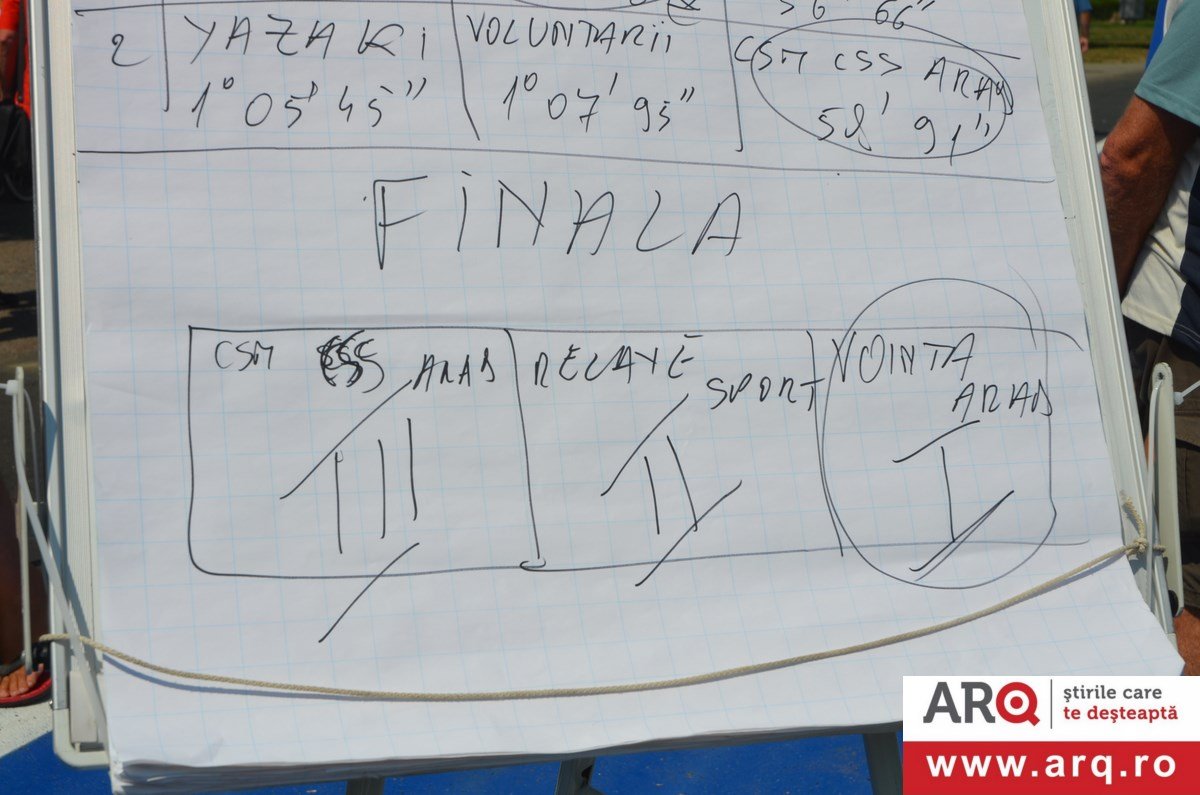 56' 66"
2 YAZAKi VOLUNTARii CSM CSS ARAD
1° 05' 45" 1° 07' 95" 58' 91"
FiNALA
CSM CSS ARAD RELAYE SPORT VOINTA ARAD
III II I
ARQ știrile care
te deșteaptă
www.arq.ro